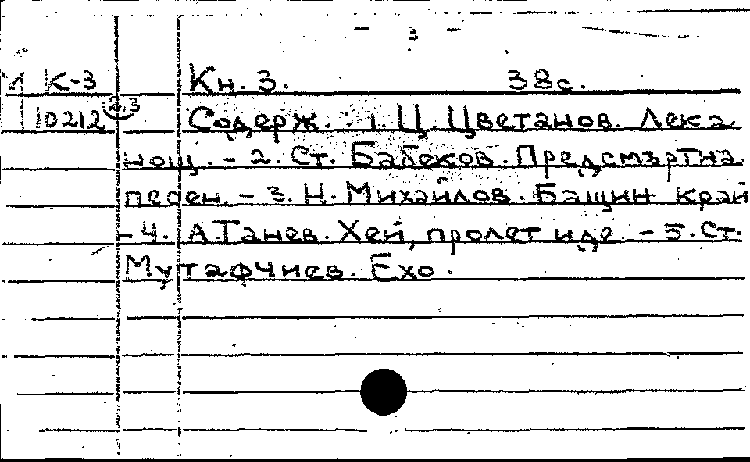 - 3 -
М К-3 Кн. 3. 38с.
10212 2.3 Содерж.: 1. Ц. Цветанов. Лека
нощ. - 2. Ст. Бабеков. Предсмъртна
песен. - 3. Н. Михайлов. Бащин край
- 4. А. Танев. Хей, пролет иде. - 5. Ст.
Мутафчиев. Ехо.